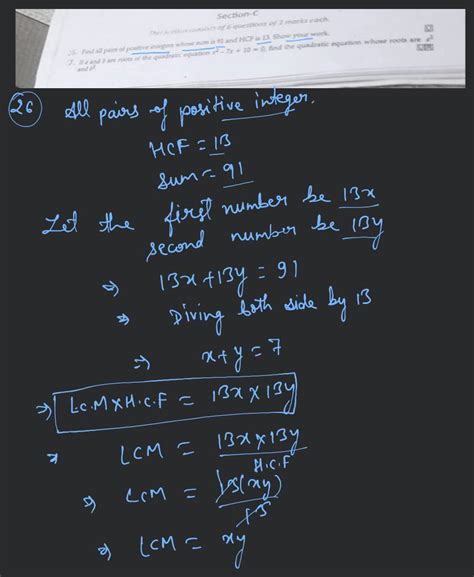 Section-C
This section consists of 6 questions of 2 marks each.
26. Find all pairs of positive integers whose sum is 91 and HCF is 13. Show your work.
27. If a and b are roots of the quadratic equation x² - 7x + 10 = 0, find the quadratic equation whose roots are a²
and b².
26 All pairs of positive integer.
HCF = 13
Sum = 91
Let the first number be 13x
second number be 13y
⇒ 13x + 13y = 91
⇒ Diving both side by 13
⇒ x + y = 7
⇒ L.C.M × H.C.F = 13x × 13y
⇒ LCM = 13x × 13y / H.C.F
⇒ LCM = 13(xy) / 13
⇒ LCM = xy